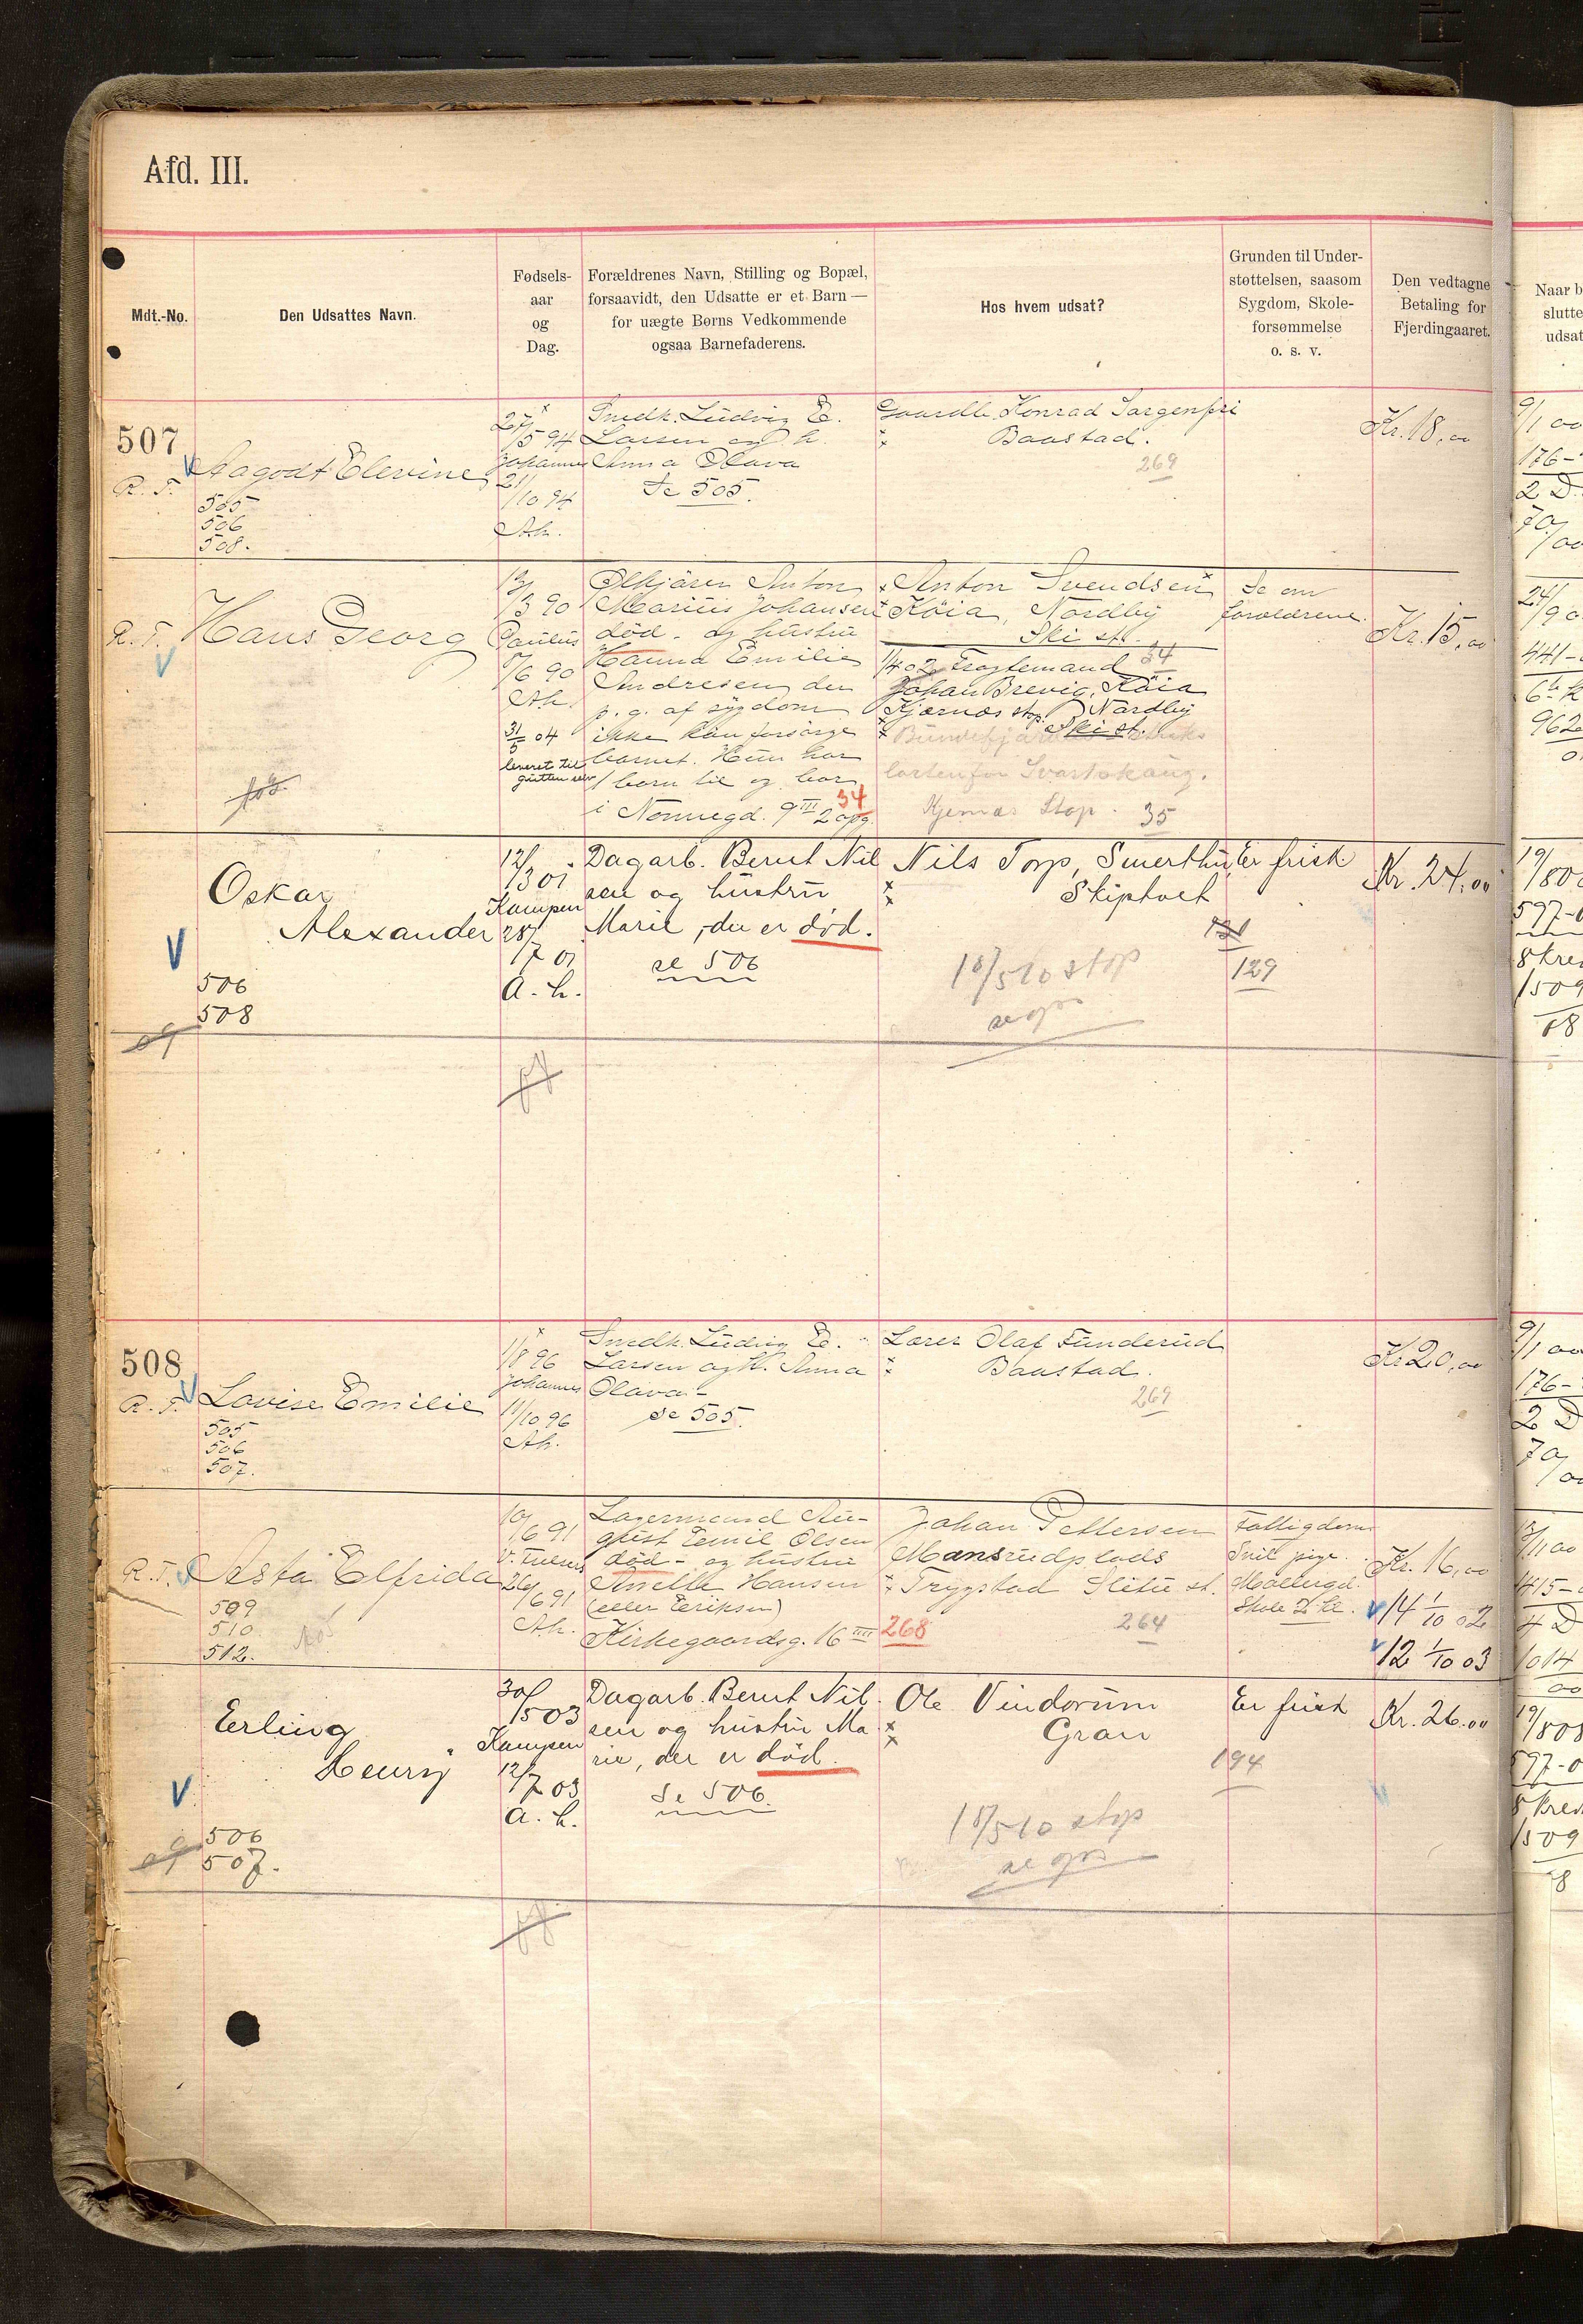 Afd. III.
Mdt.-No.
Den Udsattes Navn.
Fødsels-
aar
og
Dag.
Forældrenes Navn, Stilling og Bopæl,
forsaavidt, den Udsatte er et Barn —
for uægte Børns Vedkommende
ogsaa Barnefaderens.
Hos hvem udsat?
Grunden til Under-
støttelsen, saasom
Sygdom, Skole-
forsømmelse
o. s. v.
Den vedtagne
Betaling for
Fjerdingaaret.
Naar b
slutte
udsat
507
R. F.
Aagodt Elevine
505
506
508.
27/5 94
Johannes
21/10 94
Ah.
Smedk. Ludvig E.
Larsen og h.
Anna Olava
Se 505.
Gaardbr. Konrad Sorgenfri
Baastad.
269
Kr. 18,00
R. F.
Hans Georg
13/3 90
Paulus
8/6 90
Ah.
31/5 04
leveret til
gutten selv
Ølkjører Anton
Marius Johansen
død - og hustru
Hanna Emilie
Andresen der
p. g. af sygdom
ikke kan forsørge
barnet. Hun har
1 barn til og bor
i Nonnegd. 9 III 2 opg.
34
Anton Svendsen
Køia, Nordby
Ski st.
34
1/4 02 Fragtemand
Johan Brevig, Køia
Kjærnæs stop. Nordby
Ski st.
Bundefjorden
lastenfor Svartskaug.
Kjernæs Stop. 35
Se om
forældrene.
Kr. 15,00
Oskar
Alexander
506
508
09
12/3 01
Kampen
28/7 01
A. h.
Dagarb. Bernt Nil
sen og hustru
Marie, der er død.
se 506
Nils Torp, Smerthu
Skiptvet
18/5 10 stop
se ops
Er frisk
131
129
Kr. 24,00
508
R. F.
Lovise Emilie
505
506
507.
11/8 96
Johannes
11/10 96
Ah.
Smedk. Ludvig E.
Larsen og h. Anna
Olava -
Se 505.
Lærer Olaf Funderud
Baastad.
269
Kr. 20,00
R. F.
Asta Elfrida
509
510
512.
10/6 91
26/6 91
Ah.
Lagermand Au-
gust Emil Olsen
død - og hustru
Anette Hansen
(eller Eriksen)
Kirkegaardsg. 16 IIII
268
Johan Pettersen
Mansrudplads
Trygstad Slitu st.
264
Fattigdom
Snil pige.
Møllergd.
Skole 2 kl.
Kr. 16,00
14 1/10 02
12 1/10 03
Erling
Henry
506
507.
09
30/5 03
Kampen
12/7 03
A. h.
Dagarb. Bernt Nil
sen og hustru Ma
rie, der er død.
Se 506.
Ole Vindorum
Gran
194
18/5 10 stop
se ops
Er frisk
Kr. 26.00